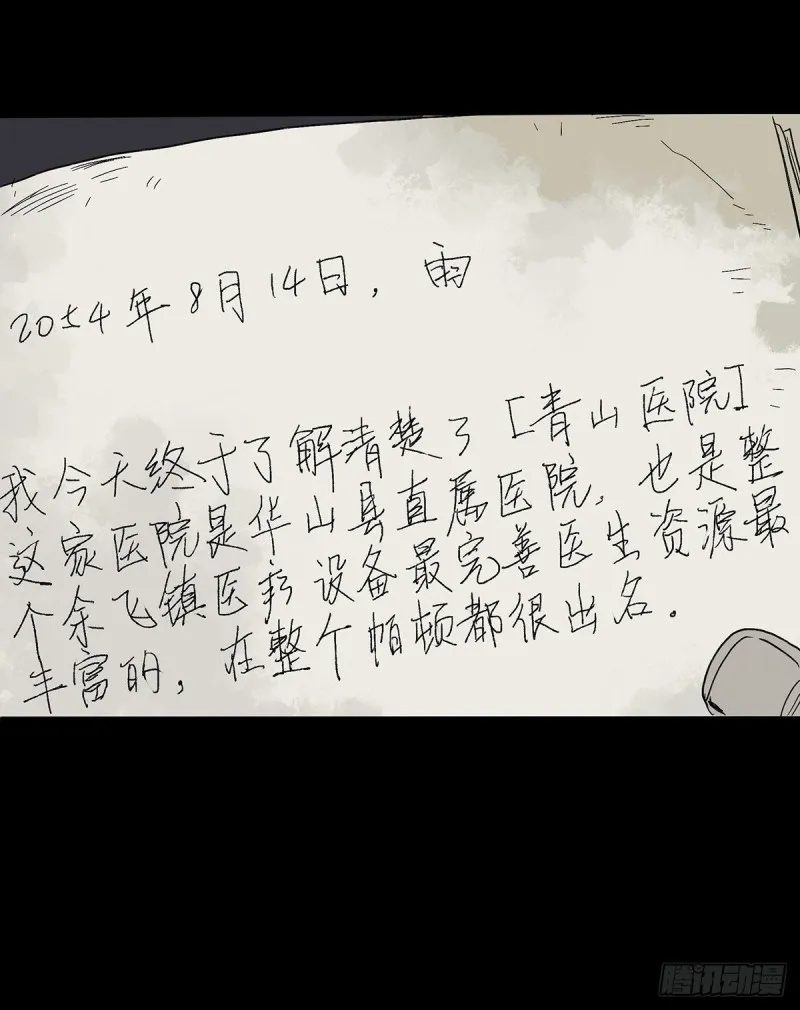 2054年8月14日，雨
我今天终于了解清楚了[青山医院]
这家医院是华山县直属医院，也是整
个余飞镇医疗设备最完善医生资源最
丰富的，在整个帕顿都很出名。
腾讯动漫